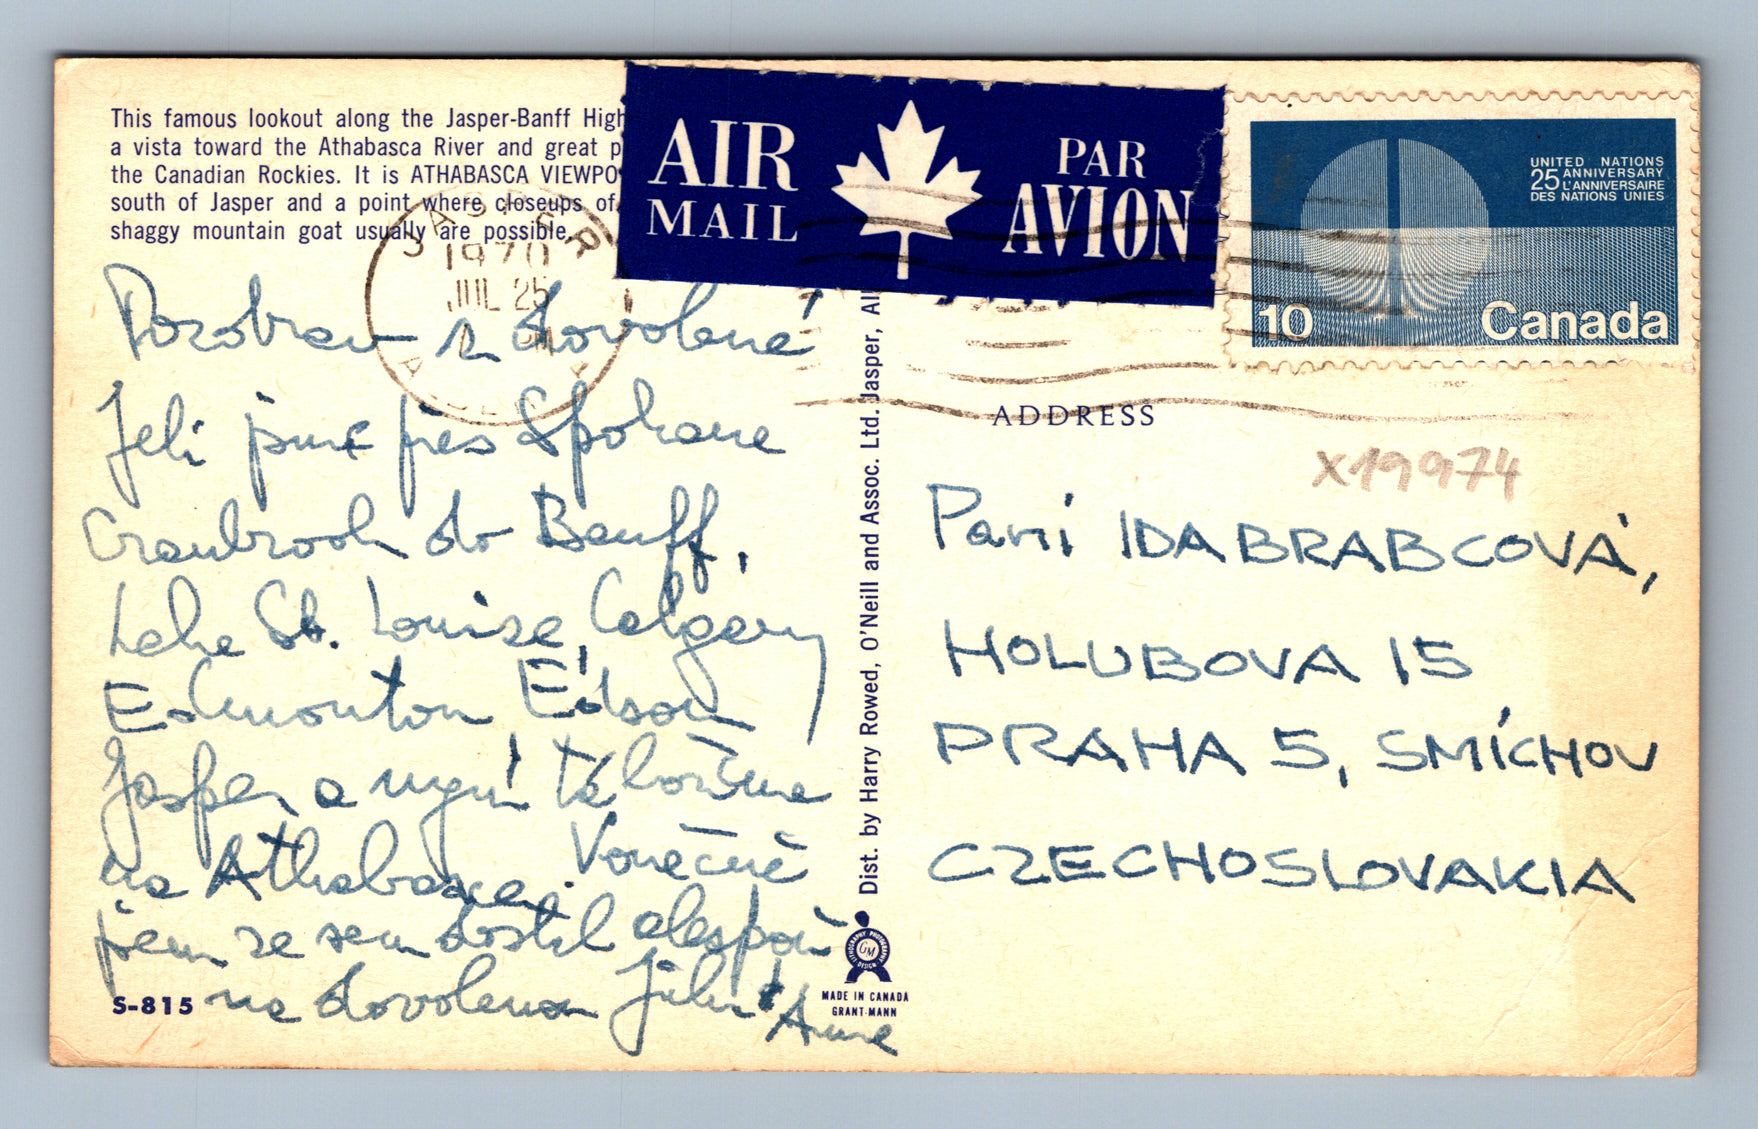 This famous lookout along the Jasper-Banff High
a vista toward the Athabasca River and great p
the Canadian Rockies. It is ATHABASCA VIEWPO
south of Jasper and a point where closeups of
shaggy mountain goat usually are possible.
AIR MAIL
PAR AVION
UNITED NATIONS
25 ANNIVERSARY
L'ANNIVERSAIRE
DES NATIONS UNIES
10 Canada
JASPER
1970
JUL 25
Pozdrav z dovolené
Jeli jsme přes Spokane
Cranbrook do Banff,
Lake St. Louise, Calgary
Edmonton Edson
Jasper a nyní táboříme
na Athabasca. Konečně
jsem se sem dostal alespoň
na dovolenou Jiří Anne
S-815
Dist. by Harry Rowed, O'Neill and Assoc. Ltd. Jasper, Al
GM
MADE IN CANADA
GRANT-MANN
ADDRESS
X19974
Paní IDA BRABCOVÁ,
HOLUBOVA 15
PRAHA 5, SMÍCHOV
CZECHOSLOVAKIA